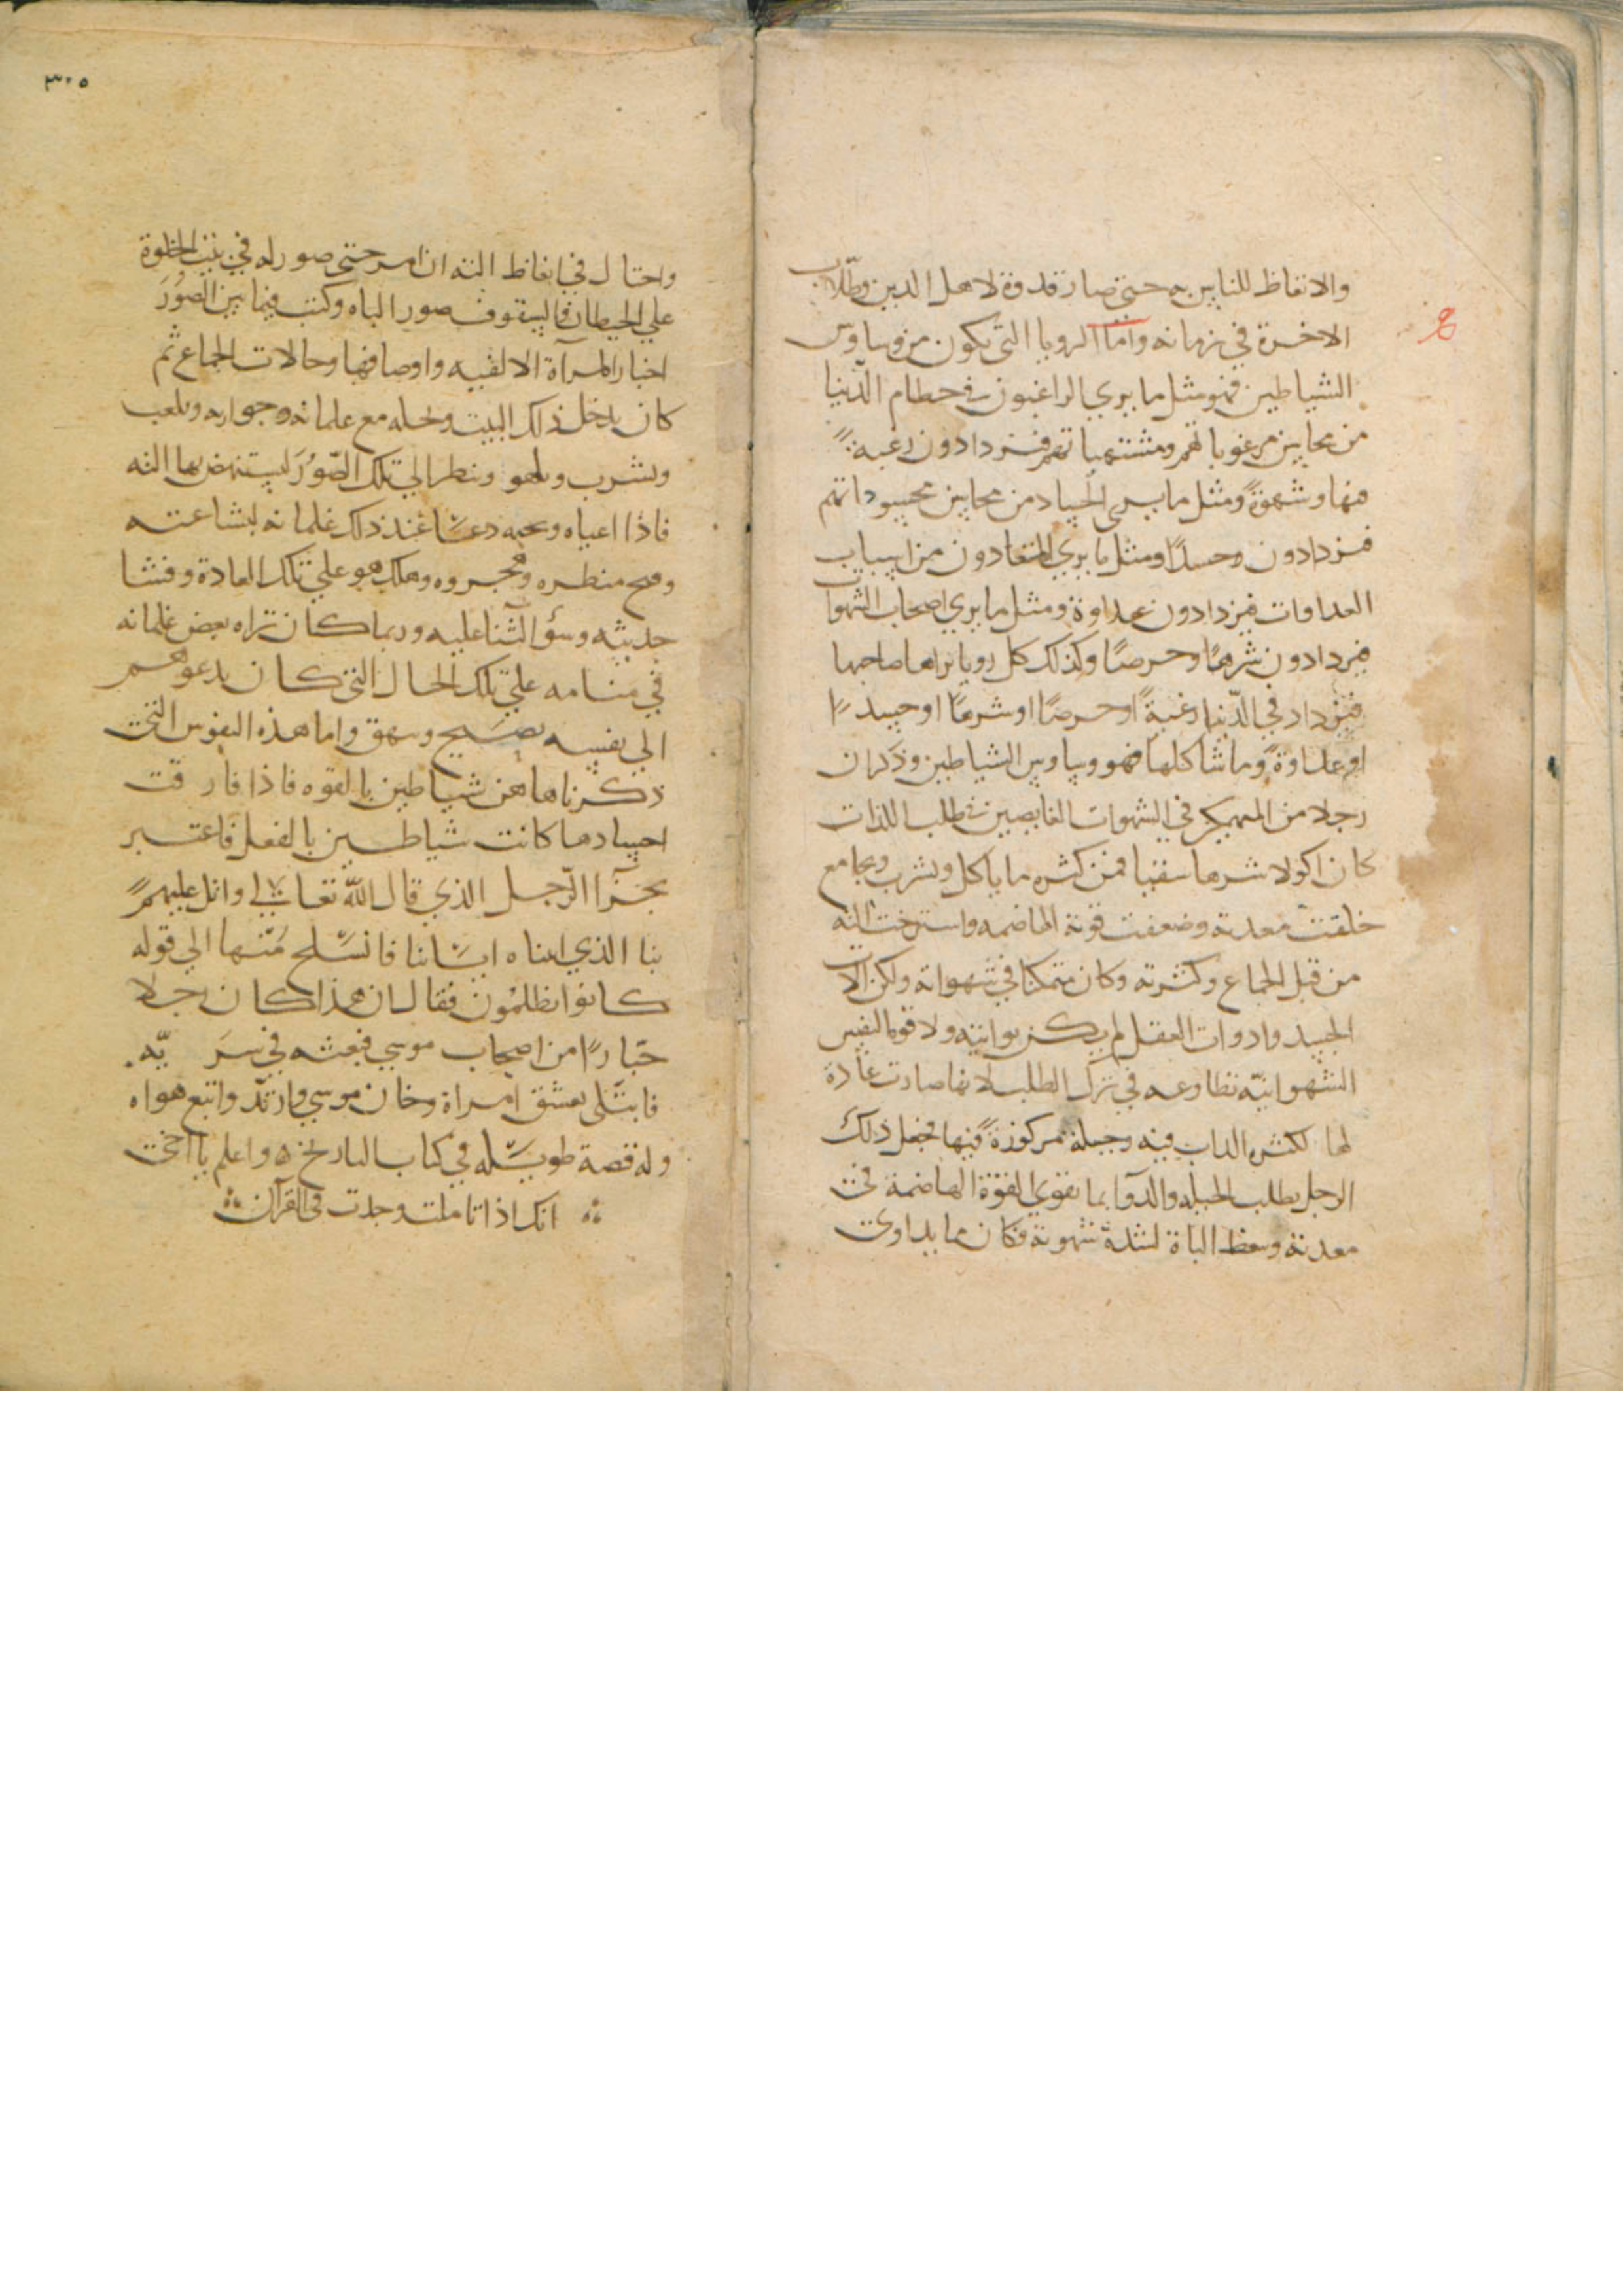 والاتعاظ للناس به حتى صار قدوة لاهل الدين وطلاب
الاخرة في زمانه واما الرويا التي تكون من وساوس
الشياطين فهو مثل ما يري الراغبون في حطام الدنيا
من محاسن مرغوباتهم ومشتهياتهم فيزدادون رغبة
فيها وشهوة ومثل ما يرى الحساد من محاسن محسوداتهم
فيزدادون وحسدا ومثل ما يري المتعادون من اسباب
العداوات فيزدادون عداوة ومثل ما يري اصحاب الشهوات
فيزدادون شرها وحرصا وكذلك كل رويا يراها صاحبها
فيزداد في الدنيا رغبة او حرصا او شرها او حسدا
او عداوة وما شاكلها فهو وساوس الشياطين وذكر ان
رجلا من المنهمكين في الشهوات الغايصين في طلب اللذات
كان اكولا شرها شقيا فمن كثره ما ياكل ويشرب ويجامع
خلقت معدته وضعفت قوته الهاضمه واسترخت الته
من قبل الجماع وكثرته وكان متمكنا في شهواته ولكن الات
الجسد وادوات العقل لم يكن يواتيه ولا قوة النفس
الشهوانية تطاوعه في ترك الطلب لانها صارت عادة
لها لكثره الداب فيه وجبلة مركوزة فيها فجعل ذلك
الرجل يطلب الحيله والدوا بما يقوي القوة الهاضمة في
معدته وينعظ الباة لشدة شهوته فكان مما يداوي
٣٠٥
واحتال في انعاظ الته ان امر حتى صور له في بيت الخلوة
علي الحيطان والسقوف صور الباه وكتب فيما بين الصور
اخبار المرآة الالفيه واوصافها وحالات الجماع ثم
كان يدخل ذلك البيت وحده مع غلمانه وجواريه ويلعب
ويشرب ويلهو وينظر الي تلك الصور ليستنهض بها الته
فاذا اعياه دعا عند ذلك غلمانه لبشاعته
وقبح منظره وهجروه وهلك هو علي تلك العادة وفشا
حديثه وسؤ الثنا عليه وربما كان تراه بعض غلمانه
في منامه علي تلك الحال التي كان يدعوهم
الي نفسه يصيح ويهق واما هذه النفوس التي
ذكرناها هن شياطين بالقوه فاذا فارقت
اجسادها كانت شياطين بالفعل فاعتبر
بخبر الرجل الذي قال الله تعالي واتل عليهم
نبا الذي اتيناه اياتنا فانسلخ منها الي قوله
كانوا يظلمون فقال ان هذا كان رجلا
جبارا من اصحاب موسي فبعثه في سرية
فابتلى بعشق امراة وخان موسي وارتد واتبع هواه
وله قصة طويله في كتاب التاريخ ه واعلم يا اخي
انك اذا تاملت وجدت في القرآن